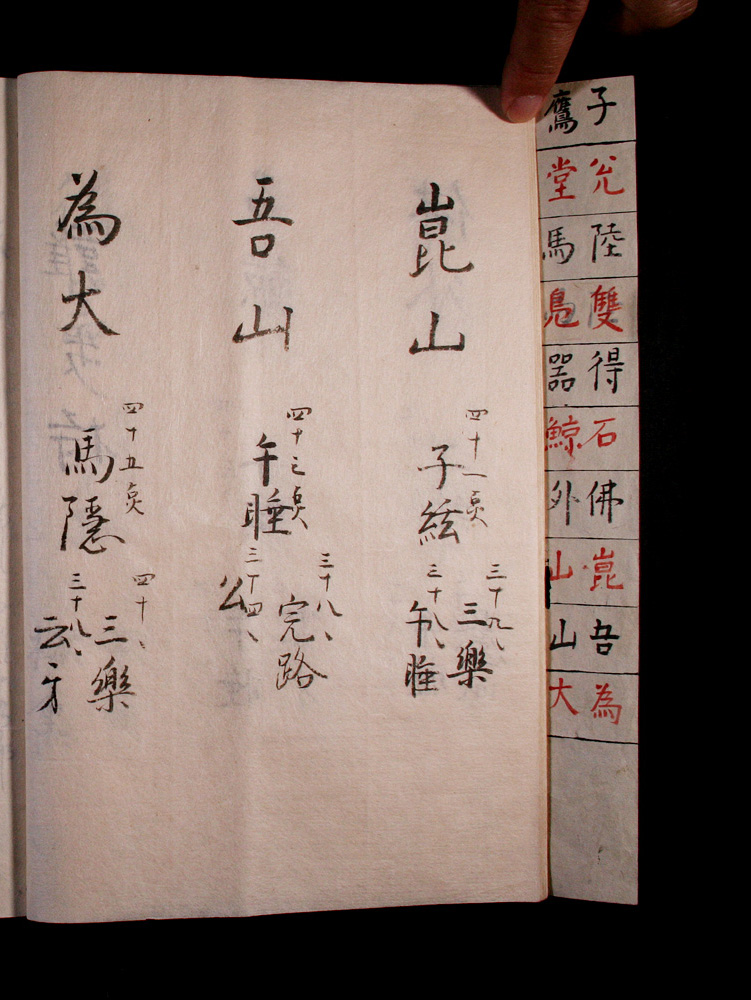 子鷹
允堂
陸馬
雙鳧
得器
石鯨
佛外
崑山
吾山
為大
崑山
四十一点
子絃
三十九、
三樂
三十八、
午睡
吾山
四十三点
午睡
三十八、
完路
三十四、
公
為大
四十五点
馬隱
四十、
三樂
三十八、
云才